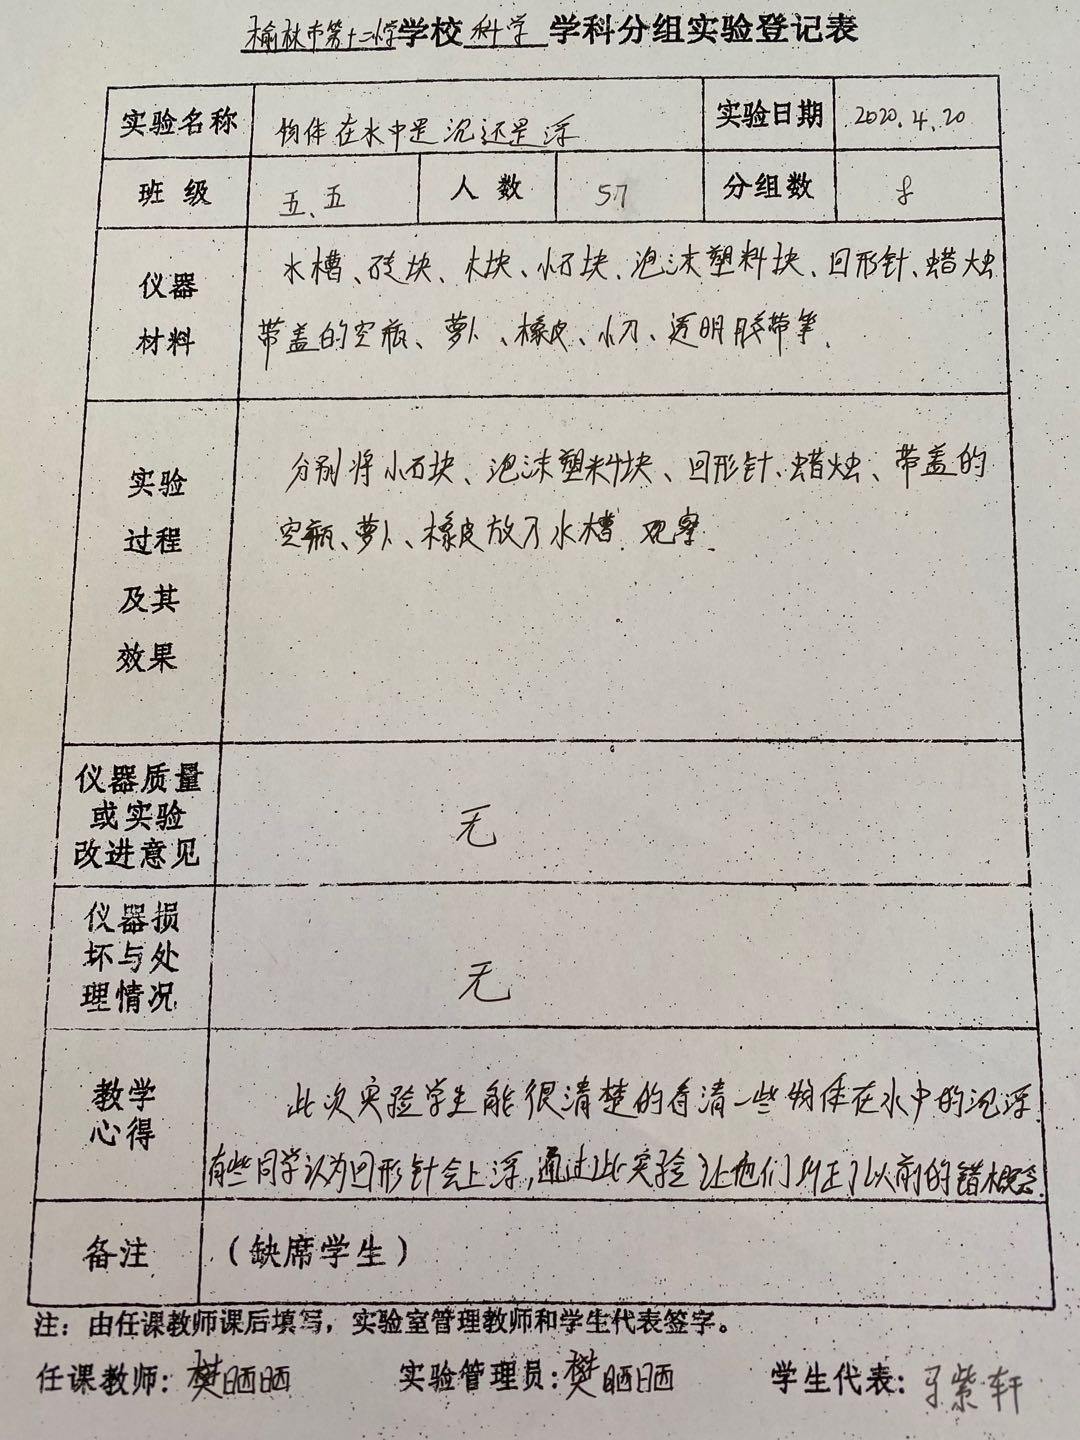 榆林市第十二小学学校科学学科分组实验登记表
实验名称 物体在水中是沉还是浮 实验日期 2020.4.20
班级 五、五 人数 57 分组数 8
仪器材料
水槽、砖块、木块、小石块、泡沫塑料块、回形针、蜡烛
带盖的空瓶、萝卜、橡皮、小刀、透明胶带等.
实验过程及其效果
分别将小石块、泡沫塑料块、回形针、蜡烛、带盖的
空瓶、萝卜、橡皮放入水槽.观察.
仪器质量或实验改进意见 无
仪器损坏与处理情况 无
教学心得
此次实验学生能很清楚的看清一些物体在水中的沉浮.
有些同学认为回形针会上浮,通过此实验让他们纠正了以前的错概念.
备注 (缺席学生)
注：由任课教师课后填写，实验室管理教师和学生代表签字。
任课教师：樊晒晒 实验管理员：樊晒晒 学生代表：紫轩